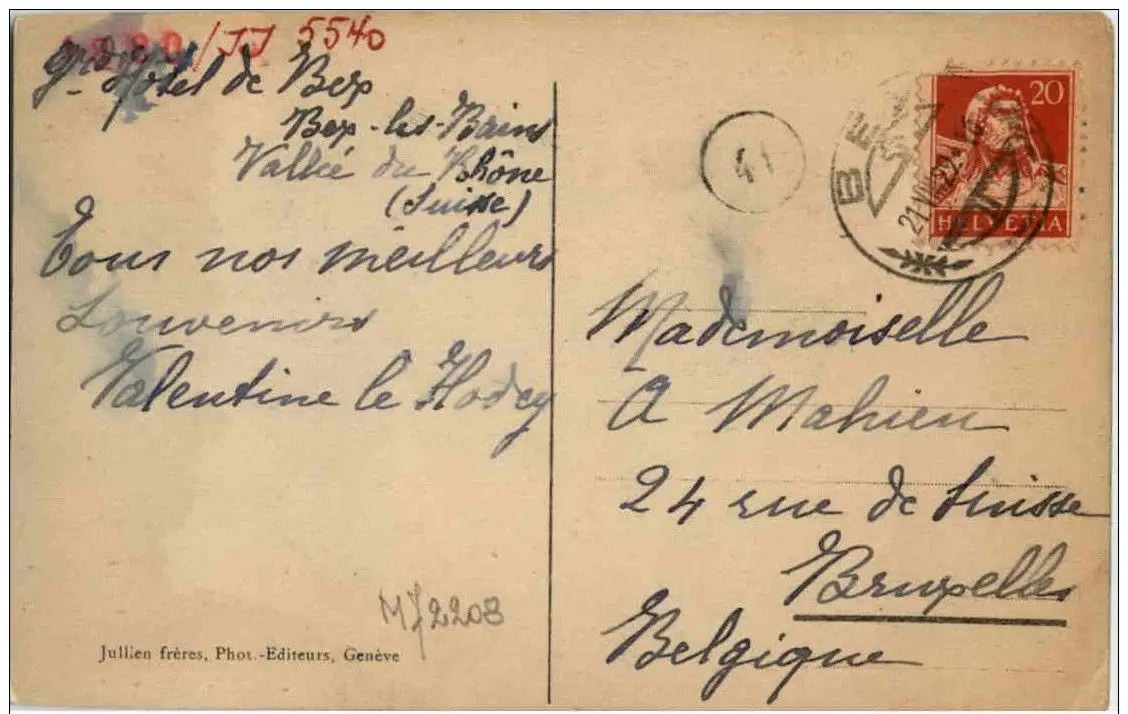 /JJ 5540
Hôtel de Bex
Bex-les-Bains
Vallée du Rhône
(Suisse)
Tous nos meilleurs
souvenirs
Valentine le Hodey
M/2203
Jullien frères, Phot.-Editeurs, Genève
41
BEX
20
HELVETIA
Mademoiselle
A Mahieu
24 rue de Suisse
Bruxelles
Belgique